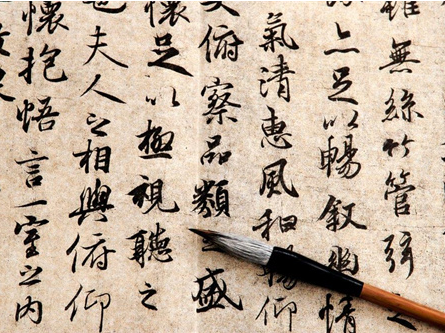 雖無絲竹管弦之
亦足以暢敘幽情
氣清惠風和暢仰
大俯察品類之盛
懷足以極視聽之
也夫人之相與俯仰
懷抱悟言一室之內